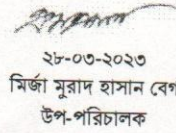 ২৮-০৩-২০২৩
মির্জা মুরাদ হাসান বেগ
উপ-পরিচালক